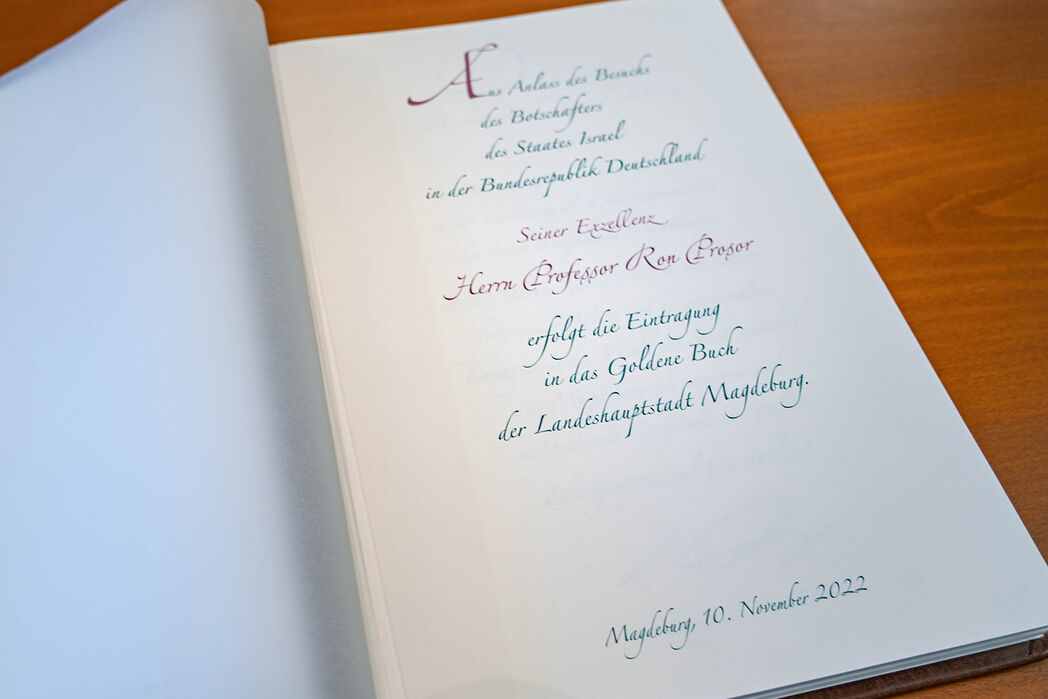 Aus Anlass des Besuchs
des Botschafters
des Staates Israel
in der Bundesrepublik Deutschland
Seiner Exzellenz
Herrn Professor Ron Prosor
erfolgt die Eintragung
in das Goldene Buch
der Landeshauptstadt Magdeburg.
Magdeburg, 10. November 2022